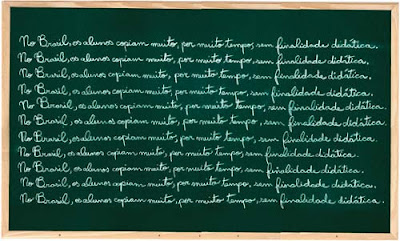 No Brasil, os alunos copiam muito, por muito tempo, sem finalidade didática.
No Brasil, os alunos copiam muito, por muito tempo, sem finalidade didática.
No Brasil, os alunos copiam muito, por muito tempo, sem finalidade didática.
No Brasil, os alunos copiam muito, por muito tempo, sem finalidade didática.
No Brasil, os alunos copiam muito, por muito tempo, sem finalidade didática.
No Brasil, os alunos copiam muito, por muito tempo, sem finalidade didática.
No Brasil, os alunos copiam muito, por muito tempo, sem finalidade didática.
No Brasil, os alunos copiam muito, por muito tempo, sem finalidade didática.
No Brasil, os alunos copiam muito, por muito tempo, sem finalidade didática.
No Brasil, os alunos copiam muito, por muito tempo, sem finalidade didática.
No Brasil, os alunos copiam muito, por muito tempo, sem finalidade didática.